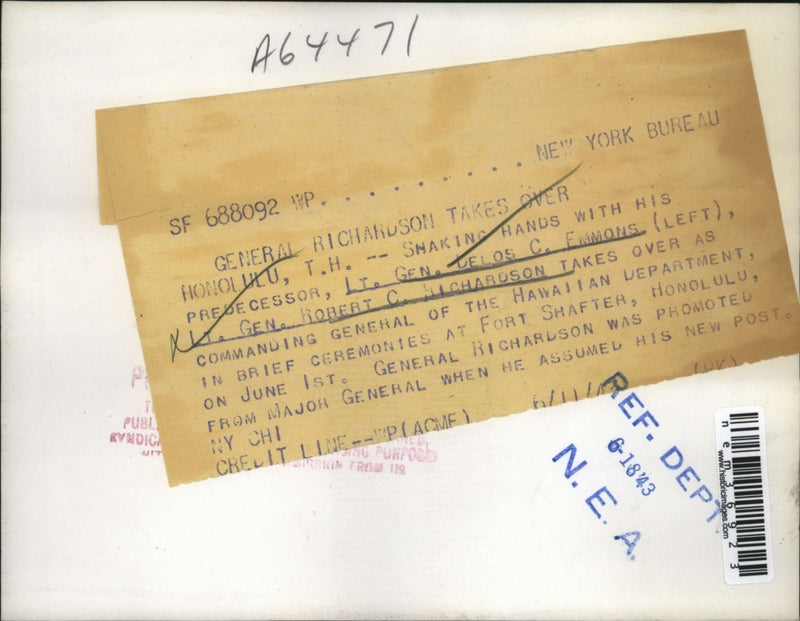 A64471
SF 688092 WP. . . . . . . . . . NEW YORK BUREAU
GENERAL RICHARDSON TAKES OVER
HONOLULU, T.H. -- SHAKING HANDS WITH HIS
PREDECESSOR, LT. GEN. DELOS C. EMMONS (LEFT),
LT. GEN. ROBERT C. RICHARDSON TAKES OVER AS
COMMANDING GENERAL OF THE HAWAIIAN DEPARTMENT,
IN BRIEF CEREMONIES AT FORT SHAFTER, HONOLULU,
ON JUNE 1ST. GENERAL RICHARDSON WAS PROMOTED
FROM MAJOR GENERAL WHEN HE ASSUMED HIS NEW POST.
NY CHI
CREDIT LINE--WP(ACME)
REF. DEPT.
6-18'43
N. E. A.
PURPOSE
FROM US
nem36923
www.historicimages.com